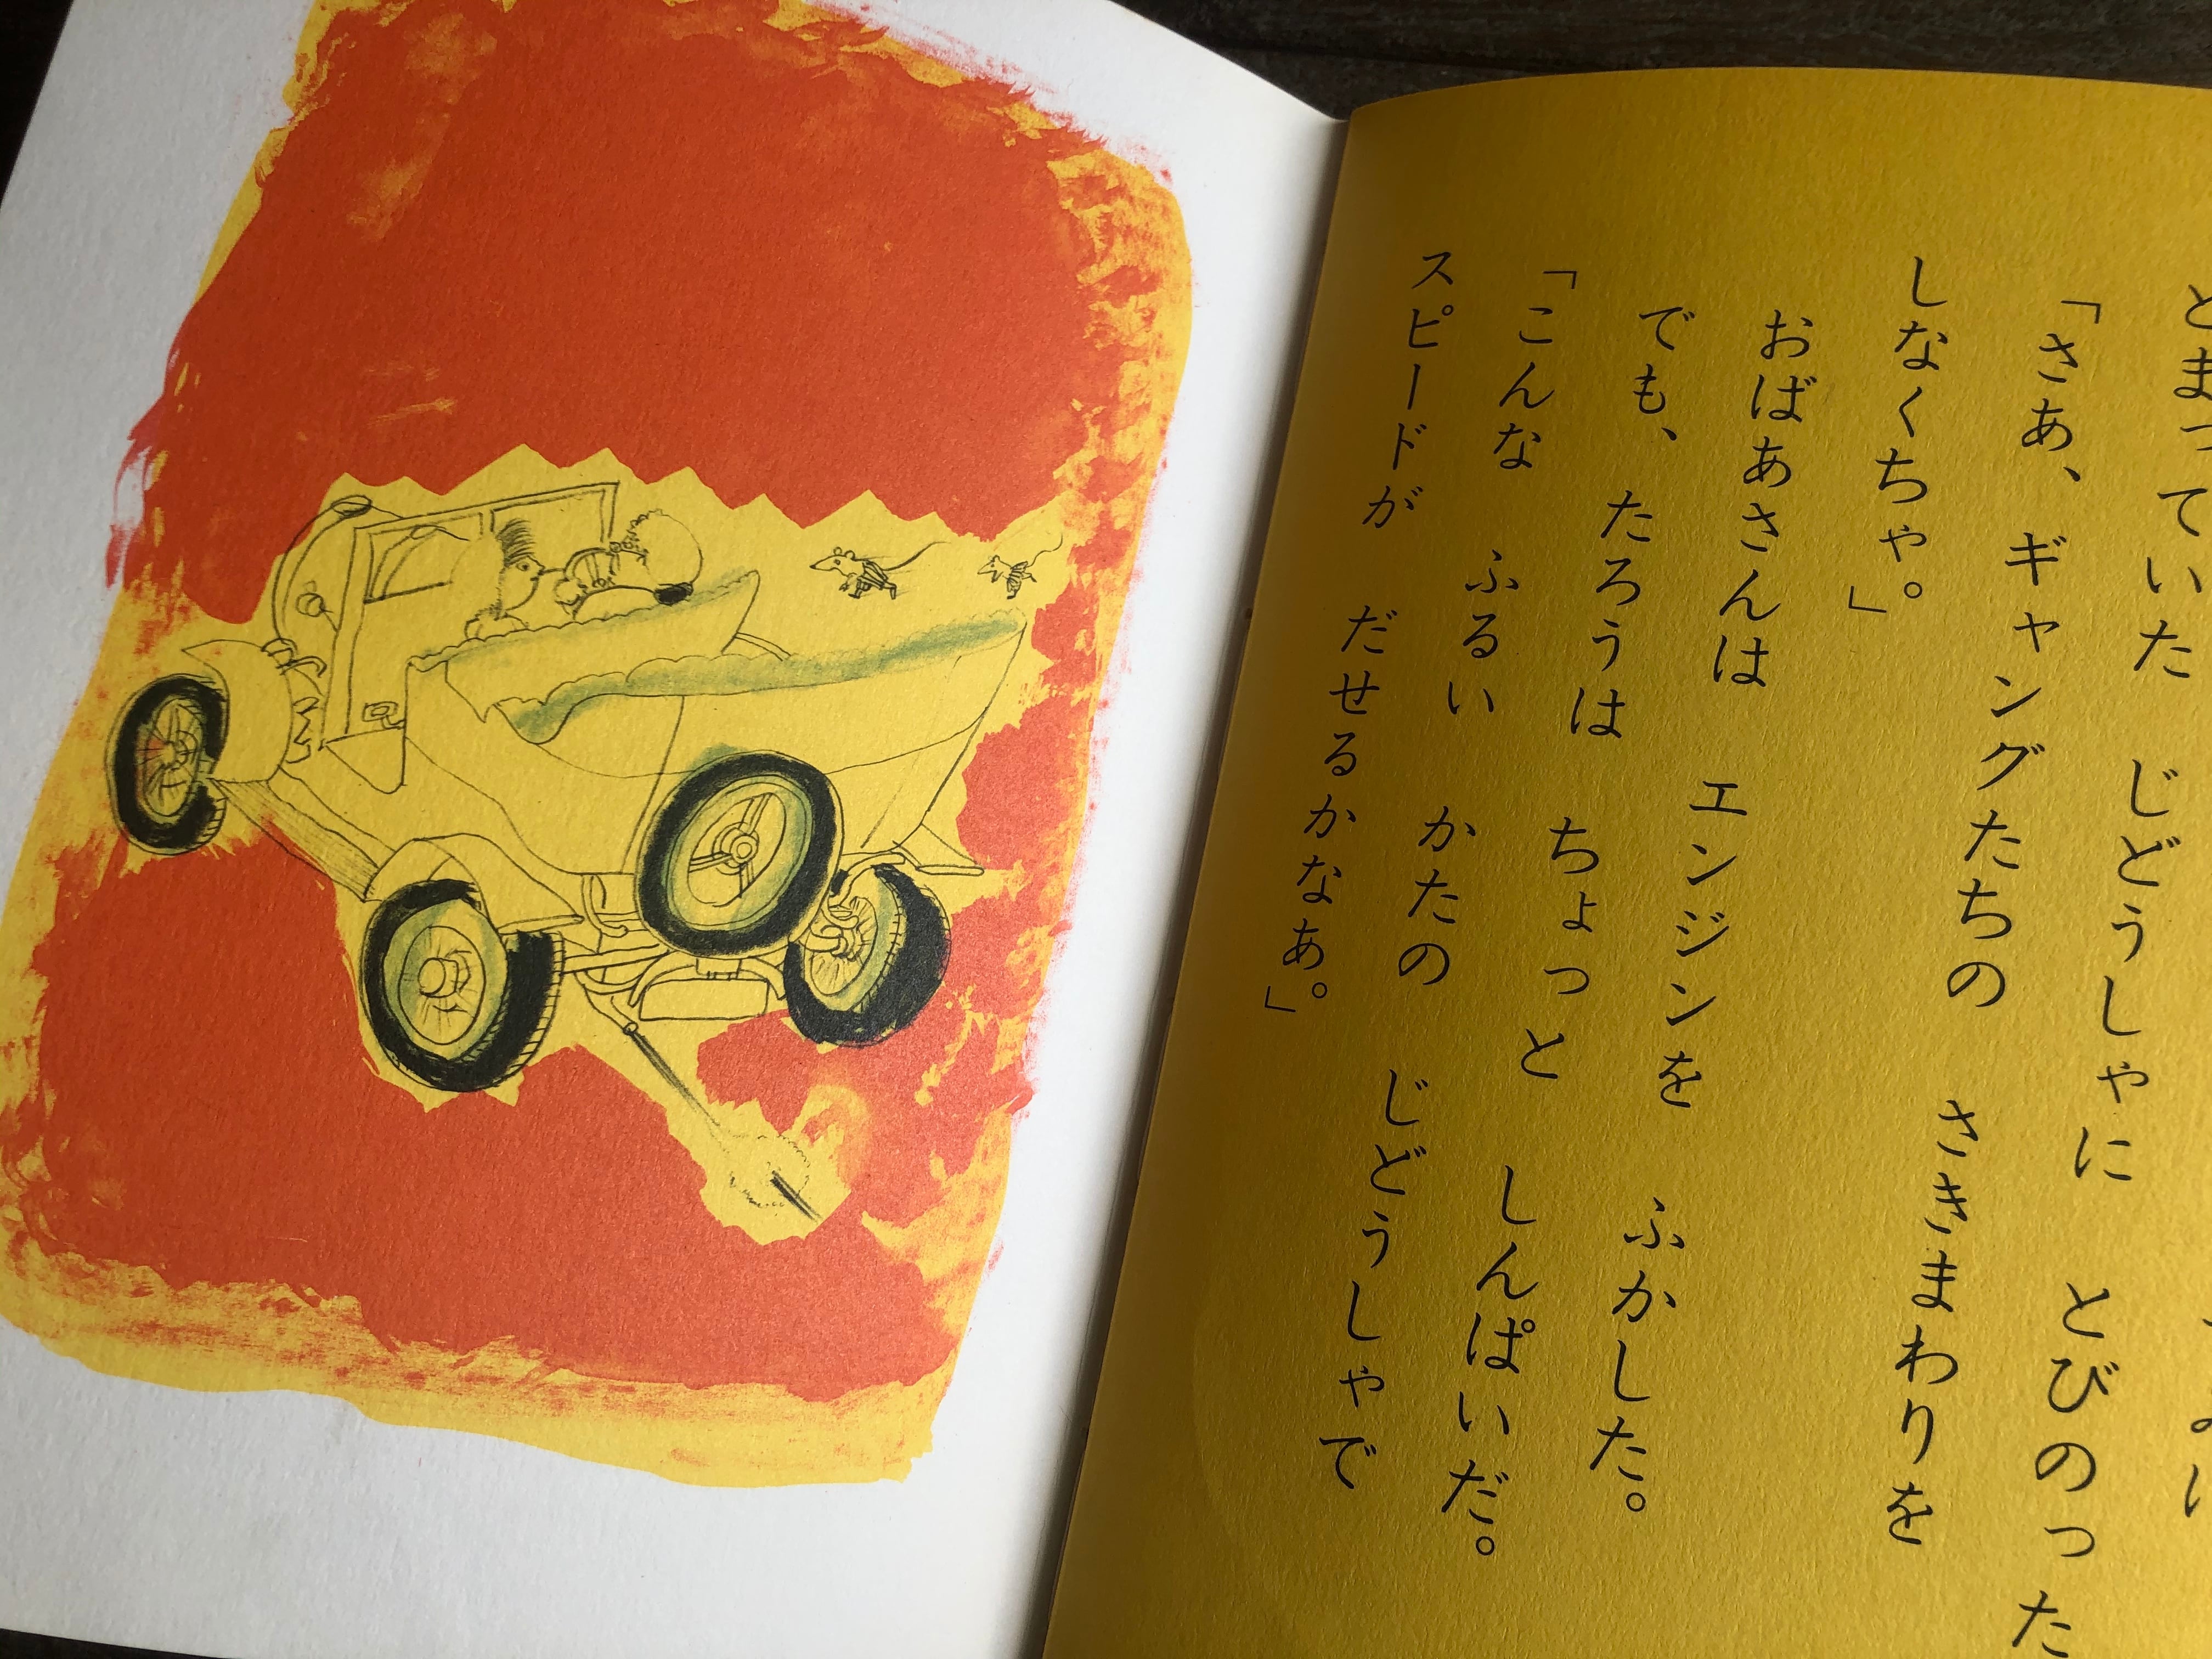 とまっていた　じどうしゃに　とびのった
「さあ、ギャングたちの　さきまわりを
しなくちゃ。」
おばあさんは　エンジンを　ふかした。
でも、たろうは　ちょっと　しんぱいだ。
「こんな　ふるい　かたの　じどうしゃで
スピードが　だせるかなあ。」